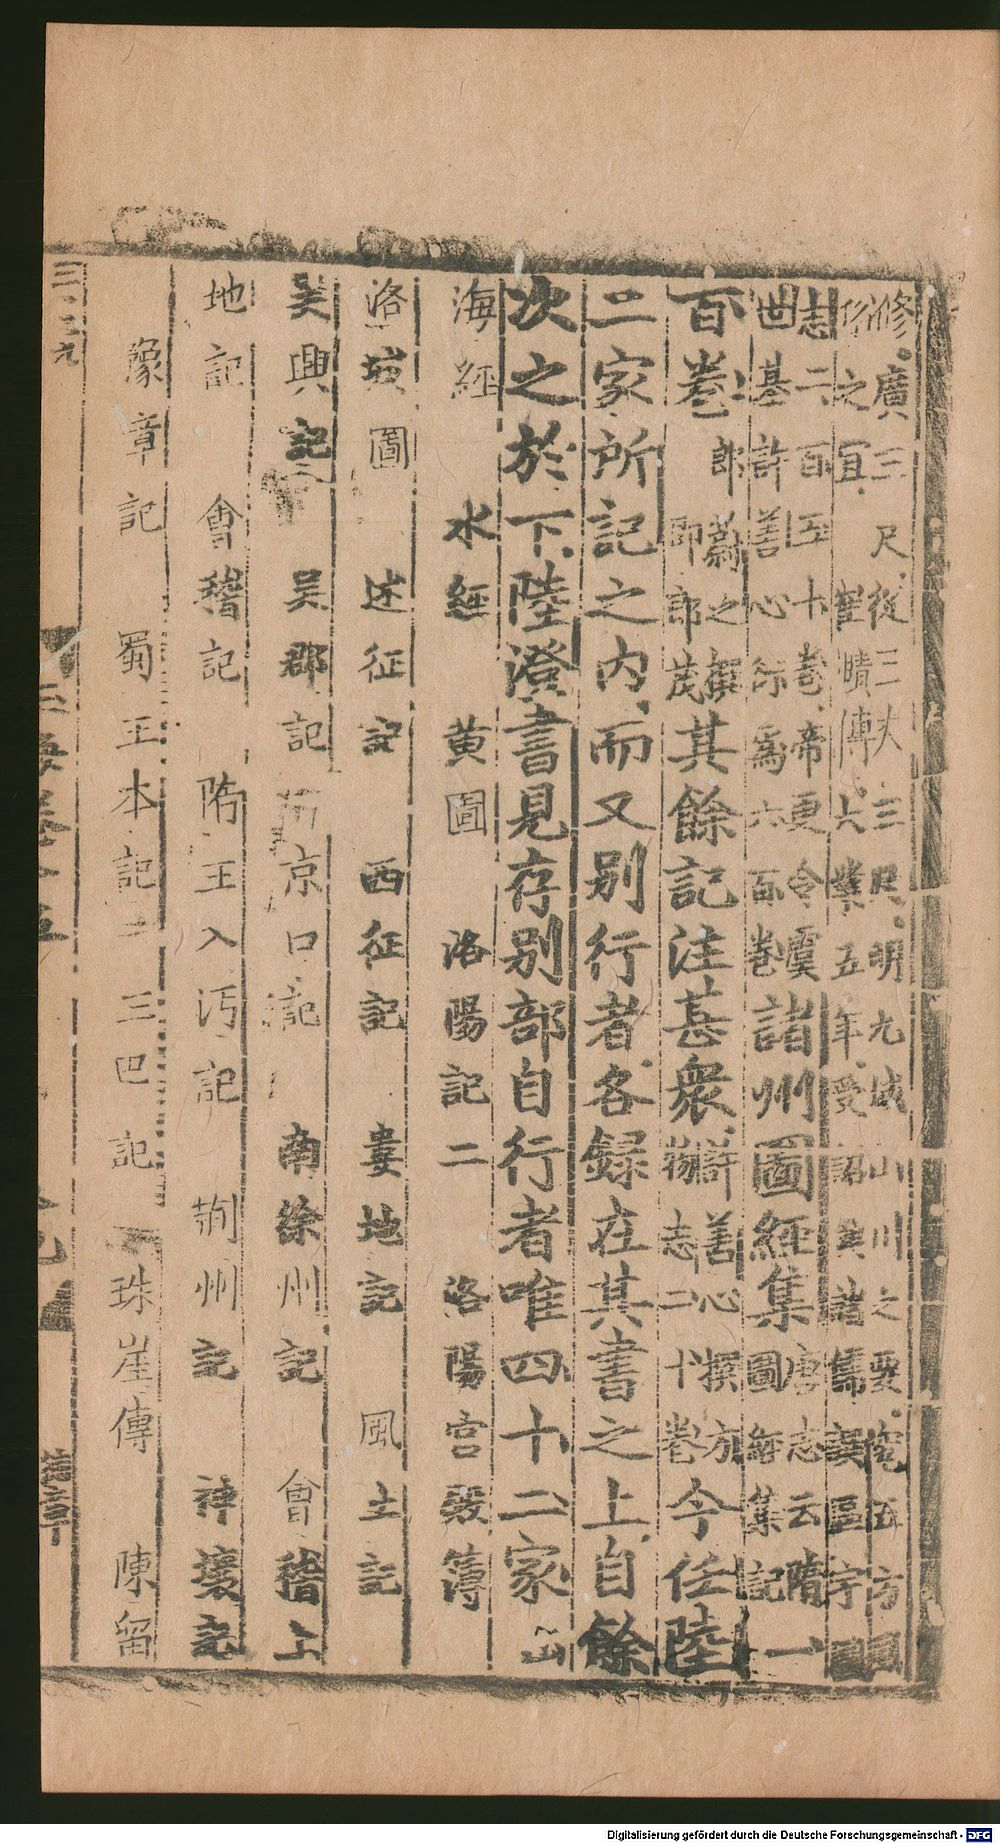 修廣三尺從三丈三尺明九域山川之要究五方風
俗之宜崔賾傳大業五年受詔與諸儒撰區宇圖
志二百五十卷帝更令虞
世基許善心衍為六百卷諸州圖經集唐志云隋一
圖經集記
百卷郎蔚之撰
即郎茂其餘記注甚眾許善心撰方
物志二十卷今任陸
二家所記之內而又別行者各錄在其書之上自餘
次之於下陸澄書見存別部自行者唯四十二家山
海經 水經 黄圖 洛陽記二 洛陽宮殿簿
洛城圖 述征記 西征記 婁地記 風土記
吴興記 吴郡記 京口記 南徐州記 會稽土
地記 會稽記 隋王入沔記 荆州記 神壤記
豫章記 蜀王本記 三巴記 珠崖傳 陳留
三·三九